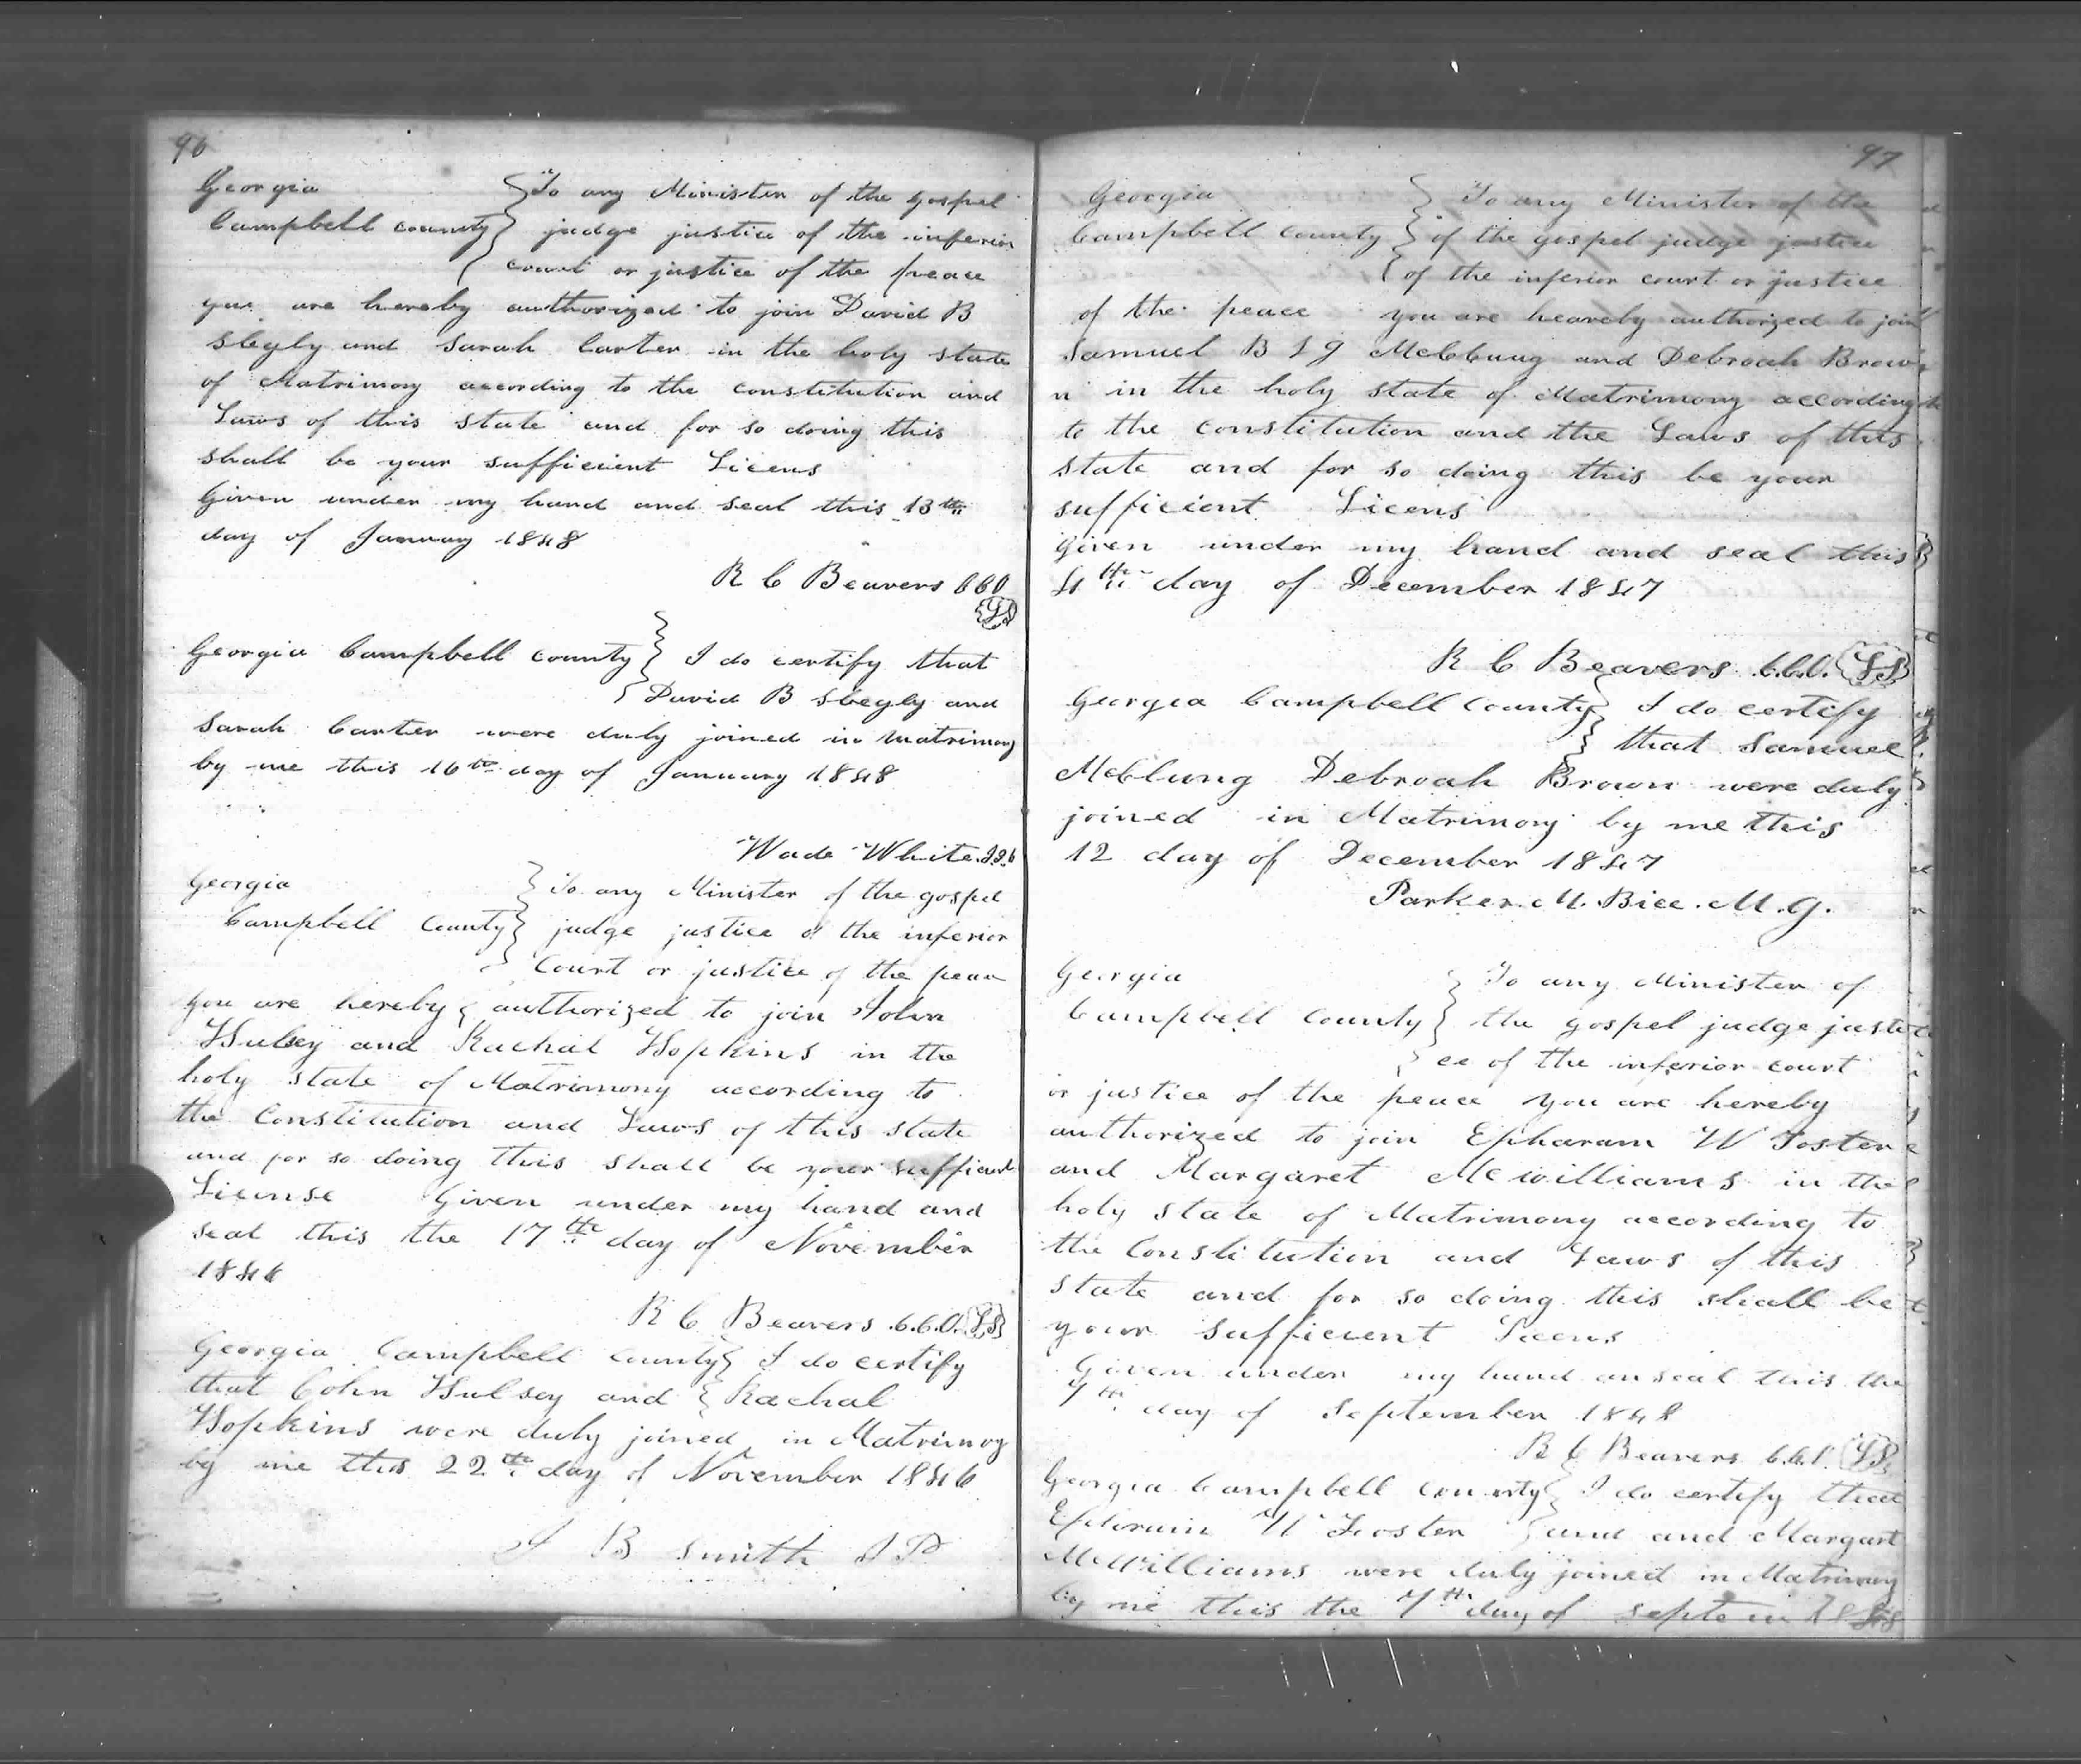 96
Georgia To any Minister of the gospel
Campbell county judge justice of the inferior
court or justice of the peace
you are hereby authorized to join David B
Slegly and Sarah Carter in the holy state
of Matrimony according to the constitution and
Laws of this state and for so doing this
shall be your sufficient Licens
Given under my hand and seal this 13th
day of January 1848
R C Beavers CCO
LS
Georgia Campbell county I do certify that
David B Slegly and
Sarah Carter were duly joined in matrimony
by me this 16th day of January 1848
Wade White
Georgia To any Minister of the gospel
Campbell County judge justice of the inferior
Court or justice of the peace
you are hereby authorized to join John
Hulsey and Rachal Hopkins in the
holy state of Matrimony according to
the Constitution and Laws of this state
and for so doing this shall be your sufficient
License Given under my hand and
seal this the 17th day of November
1846
R C Beavers C.C.O. LS
Georgia Campbell county I do certify
that John Hulsey and Rachal
Hopkins were duly joined in Matrimony
by me this 22th day of November 1846
J B Smith JP
97
Georgia To any Minister of the
Campbell County of the gospel judge justice
of the inferior court or justice
of the peace you are heareby authorized to join
Samuel B McClung and Debroah Brow
n in the holy state of Matrimony according
to the constitution and the Laws of this
state and for so doing this be your
sufficient Licens
given under my hand and seal this
4th day of December 1847
R C Beavers C.C.O. LS
Georgea Campbell County I do certify
that Samuel
McClung Debroah Brown were duly
joined in Matrimony by me this
12 day of December 1847
Parker. M. Bice. M.G.
Georgia To any Minister of
Campbell County the gospel judge justi
ce of the inferior court
or justice of the peace you are hereby
authorized to join Epharam W Foster
and Margaret Mcwilliams in the
holy state of Matrimony according to
the Constitution and Laws of this
state and for so doing this shall be
your sufficient Licens
Given under my hand an seal this the
7th day of September 1848
R C Beavers C.C.O. LS
Georgia Campbell County I do certify that
Ephraim W Foster and and Margart
McWilliams were duly joined in Matrimony
by me this the 7th day of septem 1848